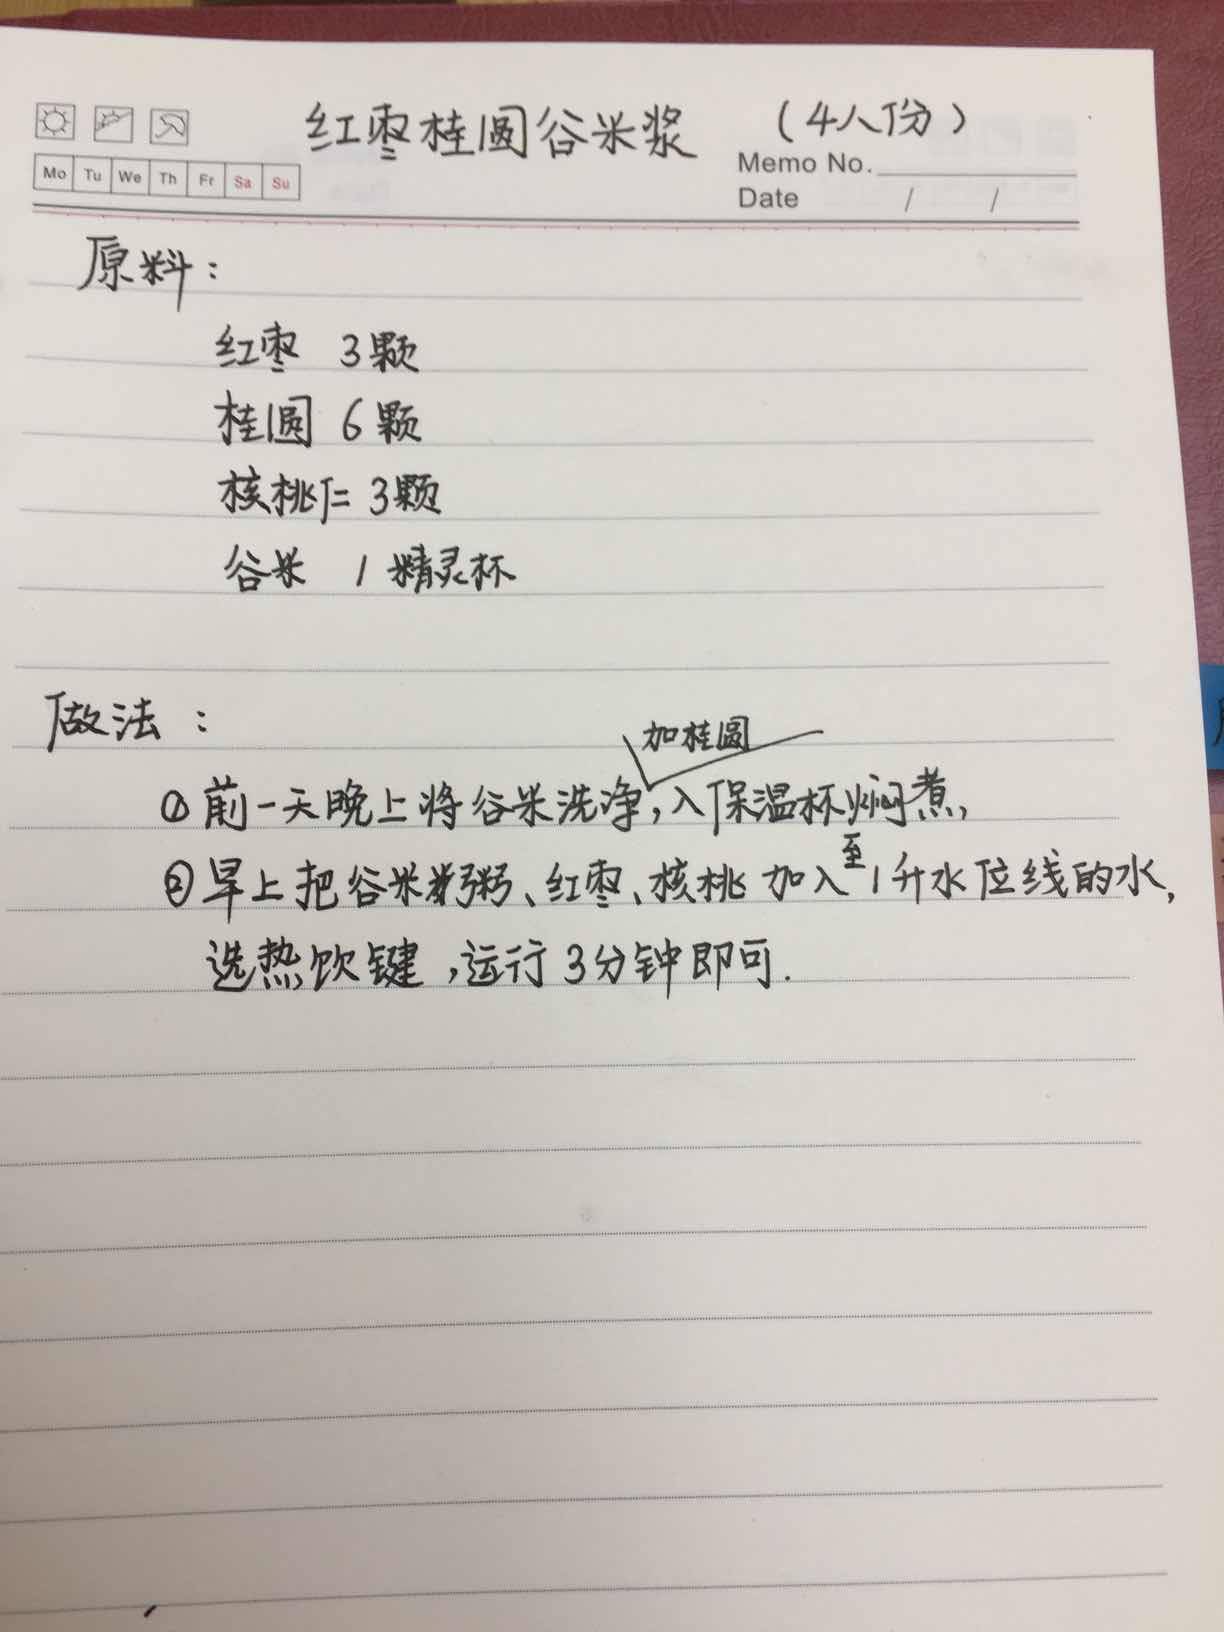 红枣桂圆谷米浆 (4人份)
Mo Tu We Th Fr Sa Su
Memo No.
Date / /
原料:
红枣 3颗
桂圆 6颗
核桃仁 3颗
谷米 1精灵杯
做法:
加桂圆
①前一天晚上将谷米洗净,入保温杯焖煮,
②早上把谷米粥、红枣、核桃加入至1升水位线的水,
选热饮键,运行3分钟即可.